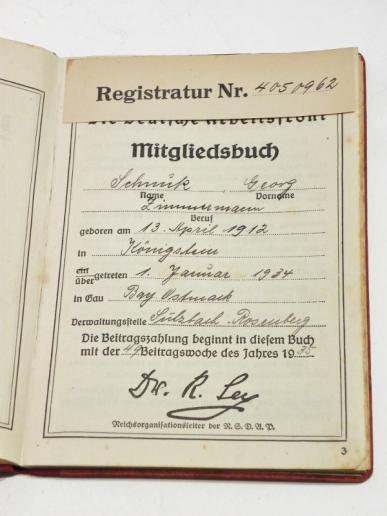 Registratur Nr. 4050962
Die Deutsche Arbeitsfront
Mitgliedsbuch
Schmuk, Georg
Name Vorname
Zimmermann
Beruf
geboren am 13. April 1912
in Königstein
ein
übergetreten 1. Januar 1934
in Gau Bay. Ostmark
Verwaltungsstelle Sulzbach-Rosenberg
Die Beitragszahlung beginnt in diesem Buch
mit der 49 Beitragswoche des Jahres 1935
Dr. R. Ley
Reichsorganisationsleiter der N.S.D.A.P.
3